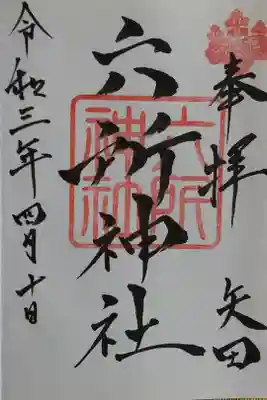 奉拝 矢田
六所神社
六所神社
令和三年四月十日